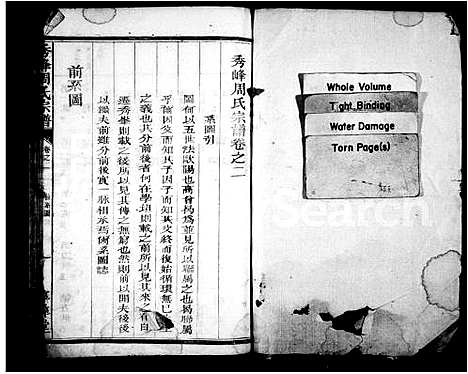 秀峰周氏宗譜卷之二
系圖引
圖何以五世法歐陽也高曾揭爲並見所以聯屬之也揭聯屬
乎孫因父而知其子因子而知其父終而復始循環無已
之義也其分前後者何在學班則載之前所以見其來之有自
遷秀峰則載之後所以見其傳之無窮也然則前以開夫後後
以繼夫前雖分前後實一脉相承焉爾系圖誌
前系圖
秀峰周氏宗譜
卷之二
Whole Volume
Tight Binding
Water Damage
Torn Page(s)
Search